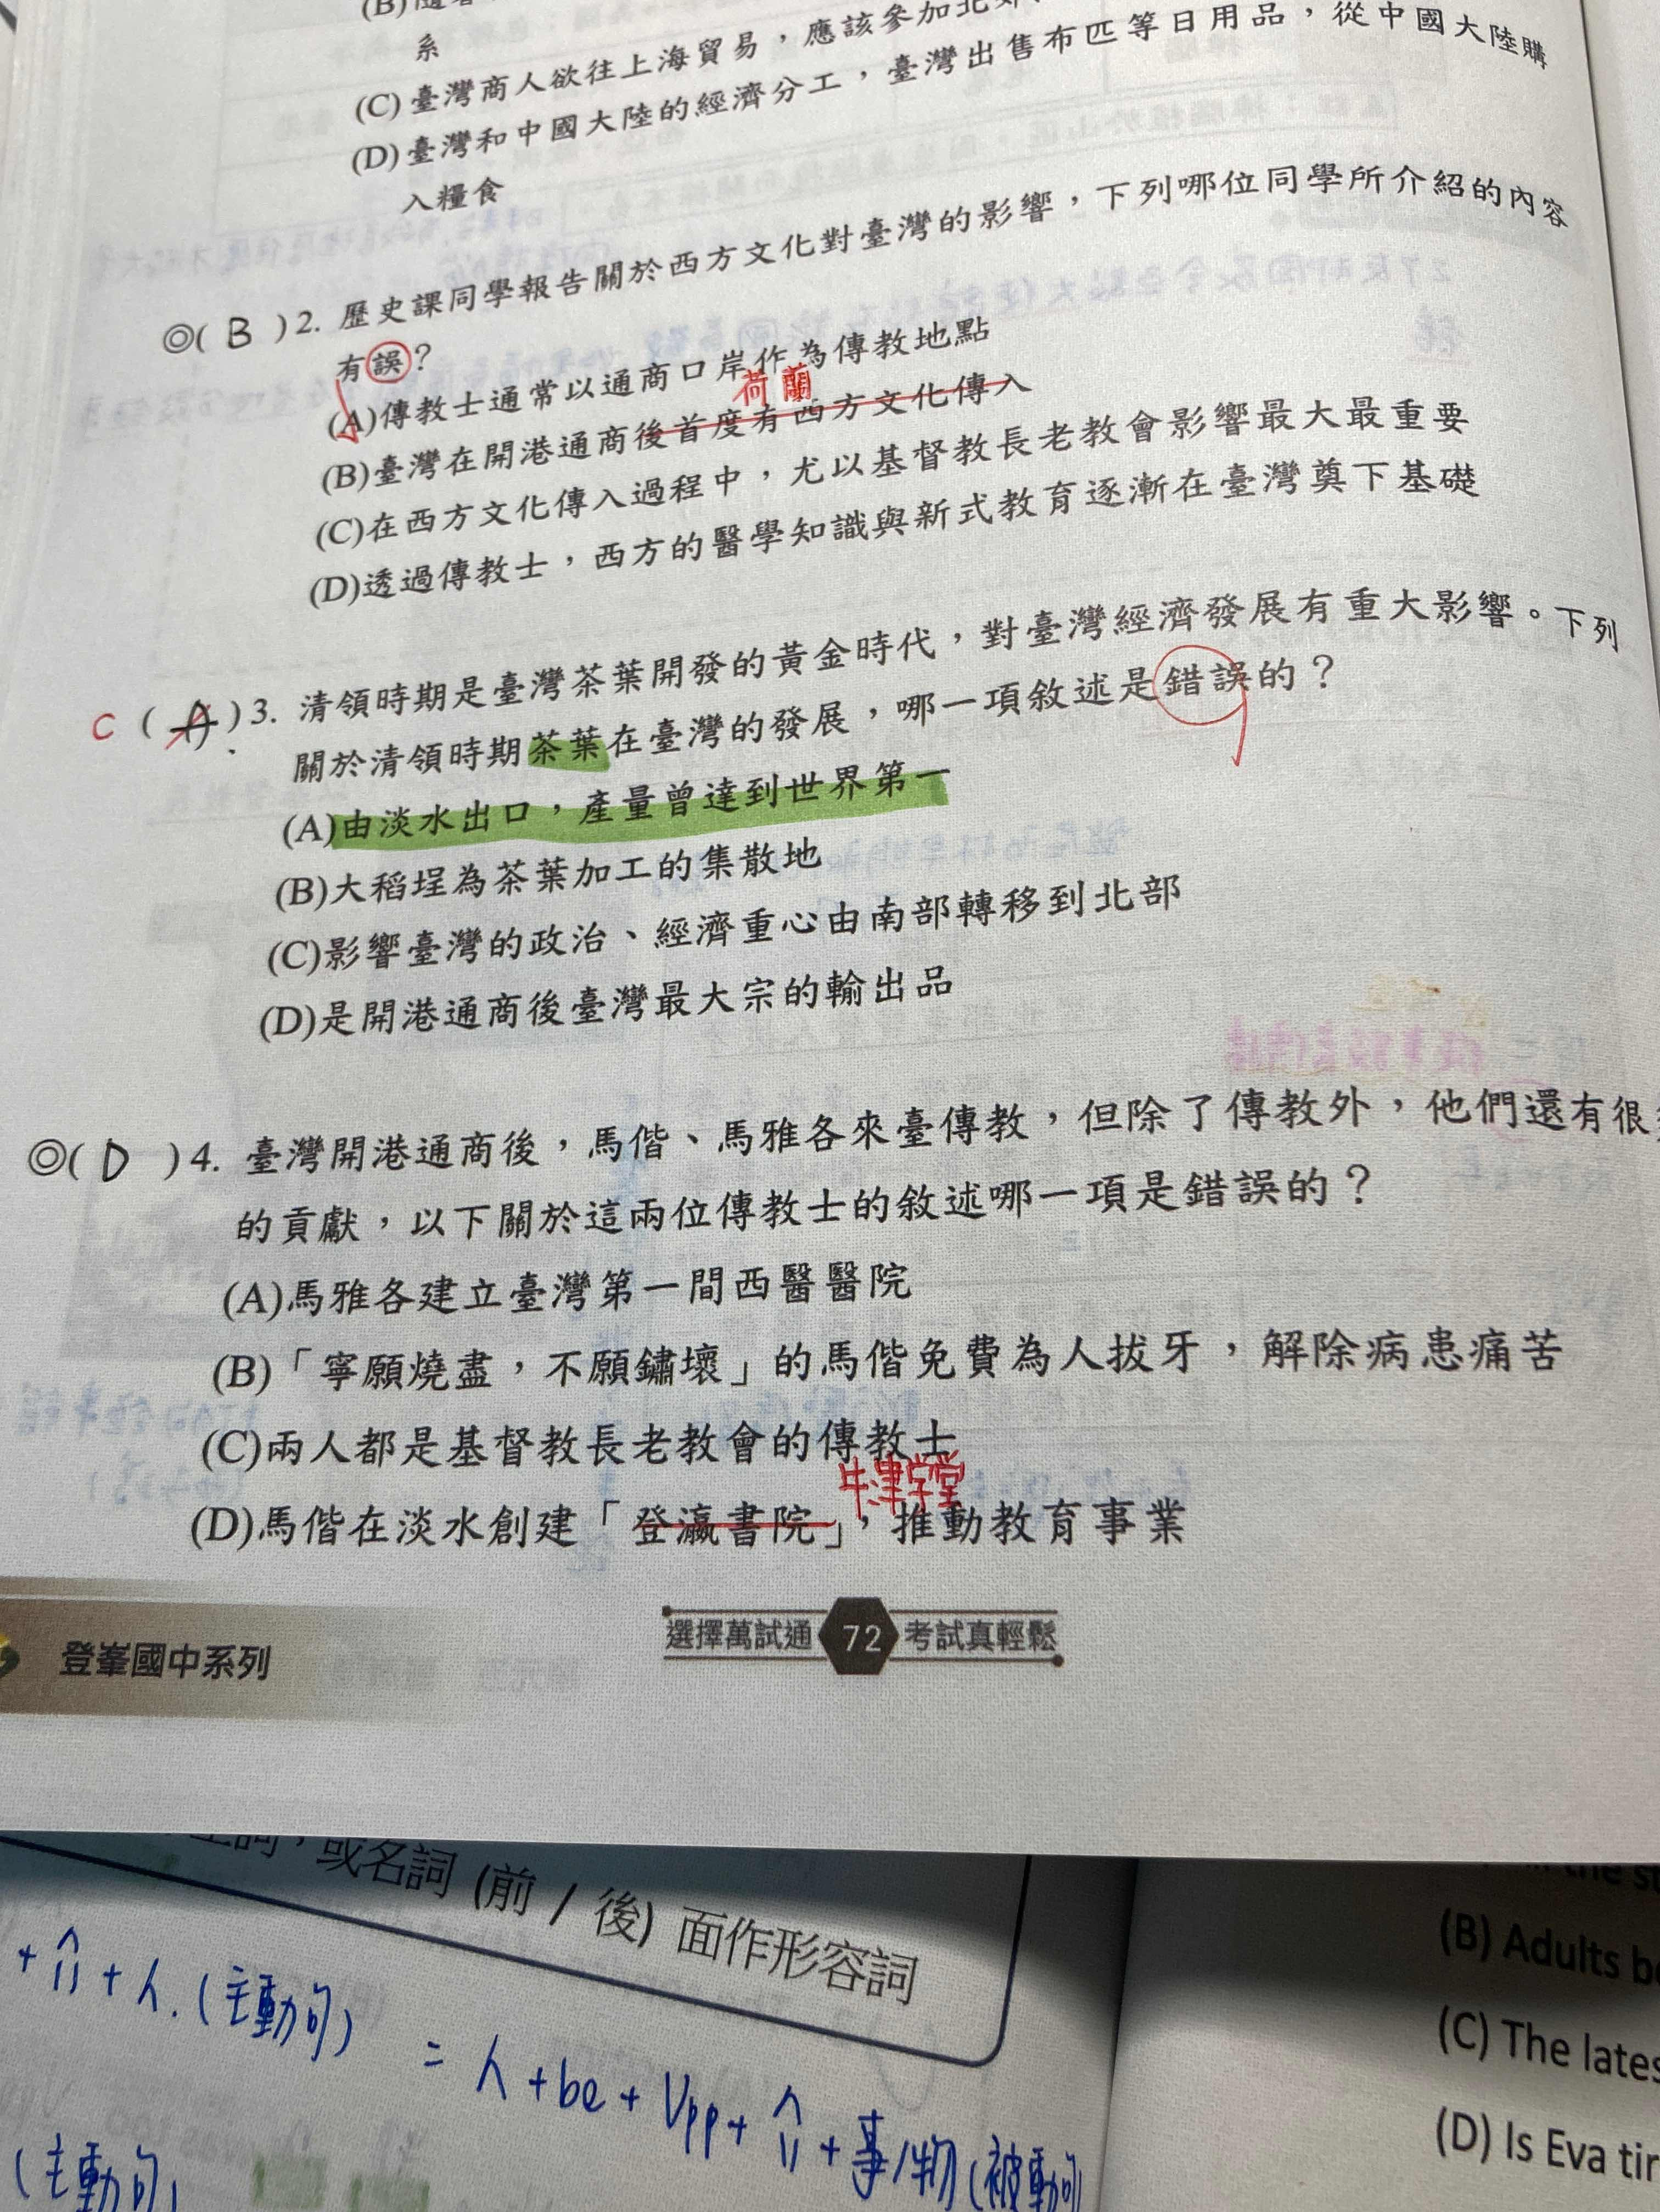 (B)
系
(C)臺灣商人欲往上海貿易，應該參加北
(D)臺灣和中國大陸的經濟分工，臺灣出售布匹等日用品，從中國大陸購
入糧食
◎( B )2. 歷史課同學報告關於西方文化對臺灣的影響，下列哪位同學所介紹的內容
有誤？
(A)傳教士通常以通商口岸作為傳教地點
荷蘭
(B)臺灣在開港通商後首度有西方文化傳入
(C)在西方文化傳入過程中，尤以基督教長老教會影響最大最重要
(D)透過傳教士，西方的醫學知識與新式教育逐漸在臺灣奠下基礎
C ( A )3. 清領時期是臺灣茶葉開發的黃金時代，對臺灣經濟發展有重大影響。下列
關於清領時期茶葉在臺灣的發展，哪一項敘述是錯誤的？
(A)由淡水出口，產量曾達到世界第一
(B)大稻埕為茶葉加工的集散地
(C)影響臺灣的政治、經濟重心由南部轉移到北部
(D)是開港通商後臺灣最大宗的輸出品
◎( D )4. 臺灣開港通商後，馬偕、馬雅各來臺傳教，但除了傳教外，他們還有很
的貢獻，以下關於這兩位傳教士的敘述哪一項是錯誤的？
(A)馬雅各建立臺灣第一間西醫醫院
(B)「寧願燒盡，不願鏽壞」的馬偕免費為人拔牙，解除病患痛苦
(C)兩人都是基督教長老教會的傳教士
牛津学堂
(D)馬偕在淡水創建「登瀛書院」，推動教育事業
登峯國中系列
選擇萬試通 72 考試真輕鬆
，或名詞 (前 / 後) 面作形容詞
+人.(主動句)
= 人+be+Vpp+
+事/物(被動句
(主動句)
(B) Adults b
(C) The lates
(D) Is Eva tir